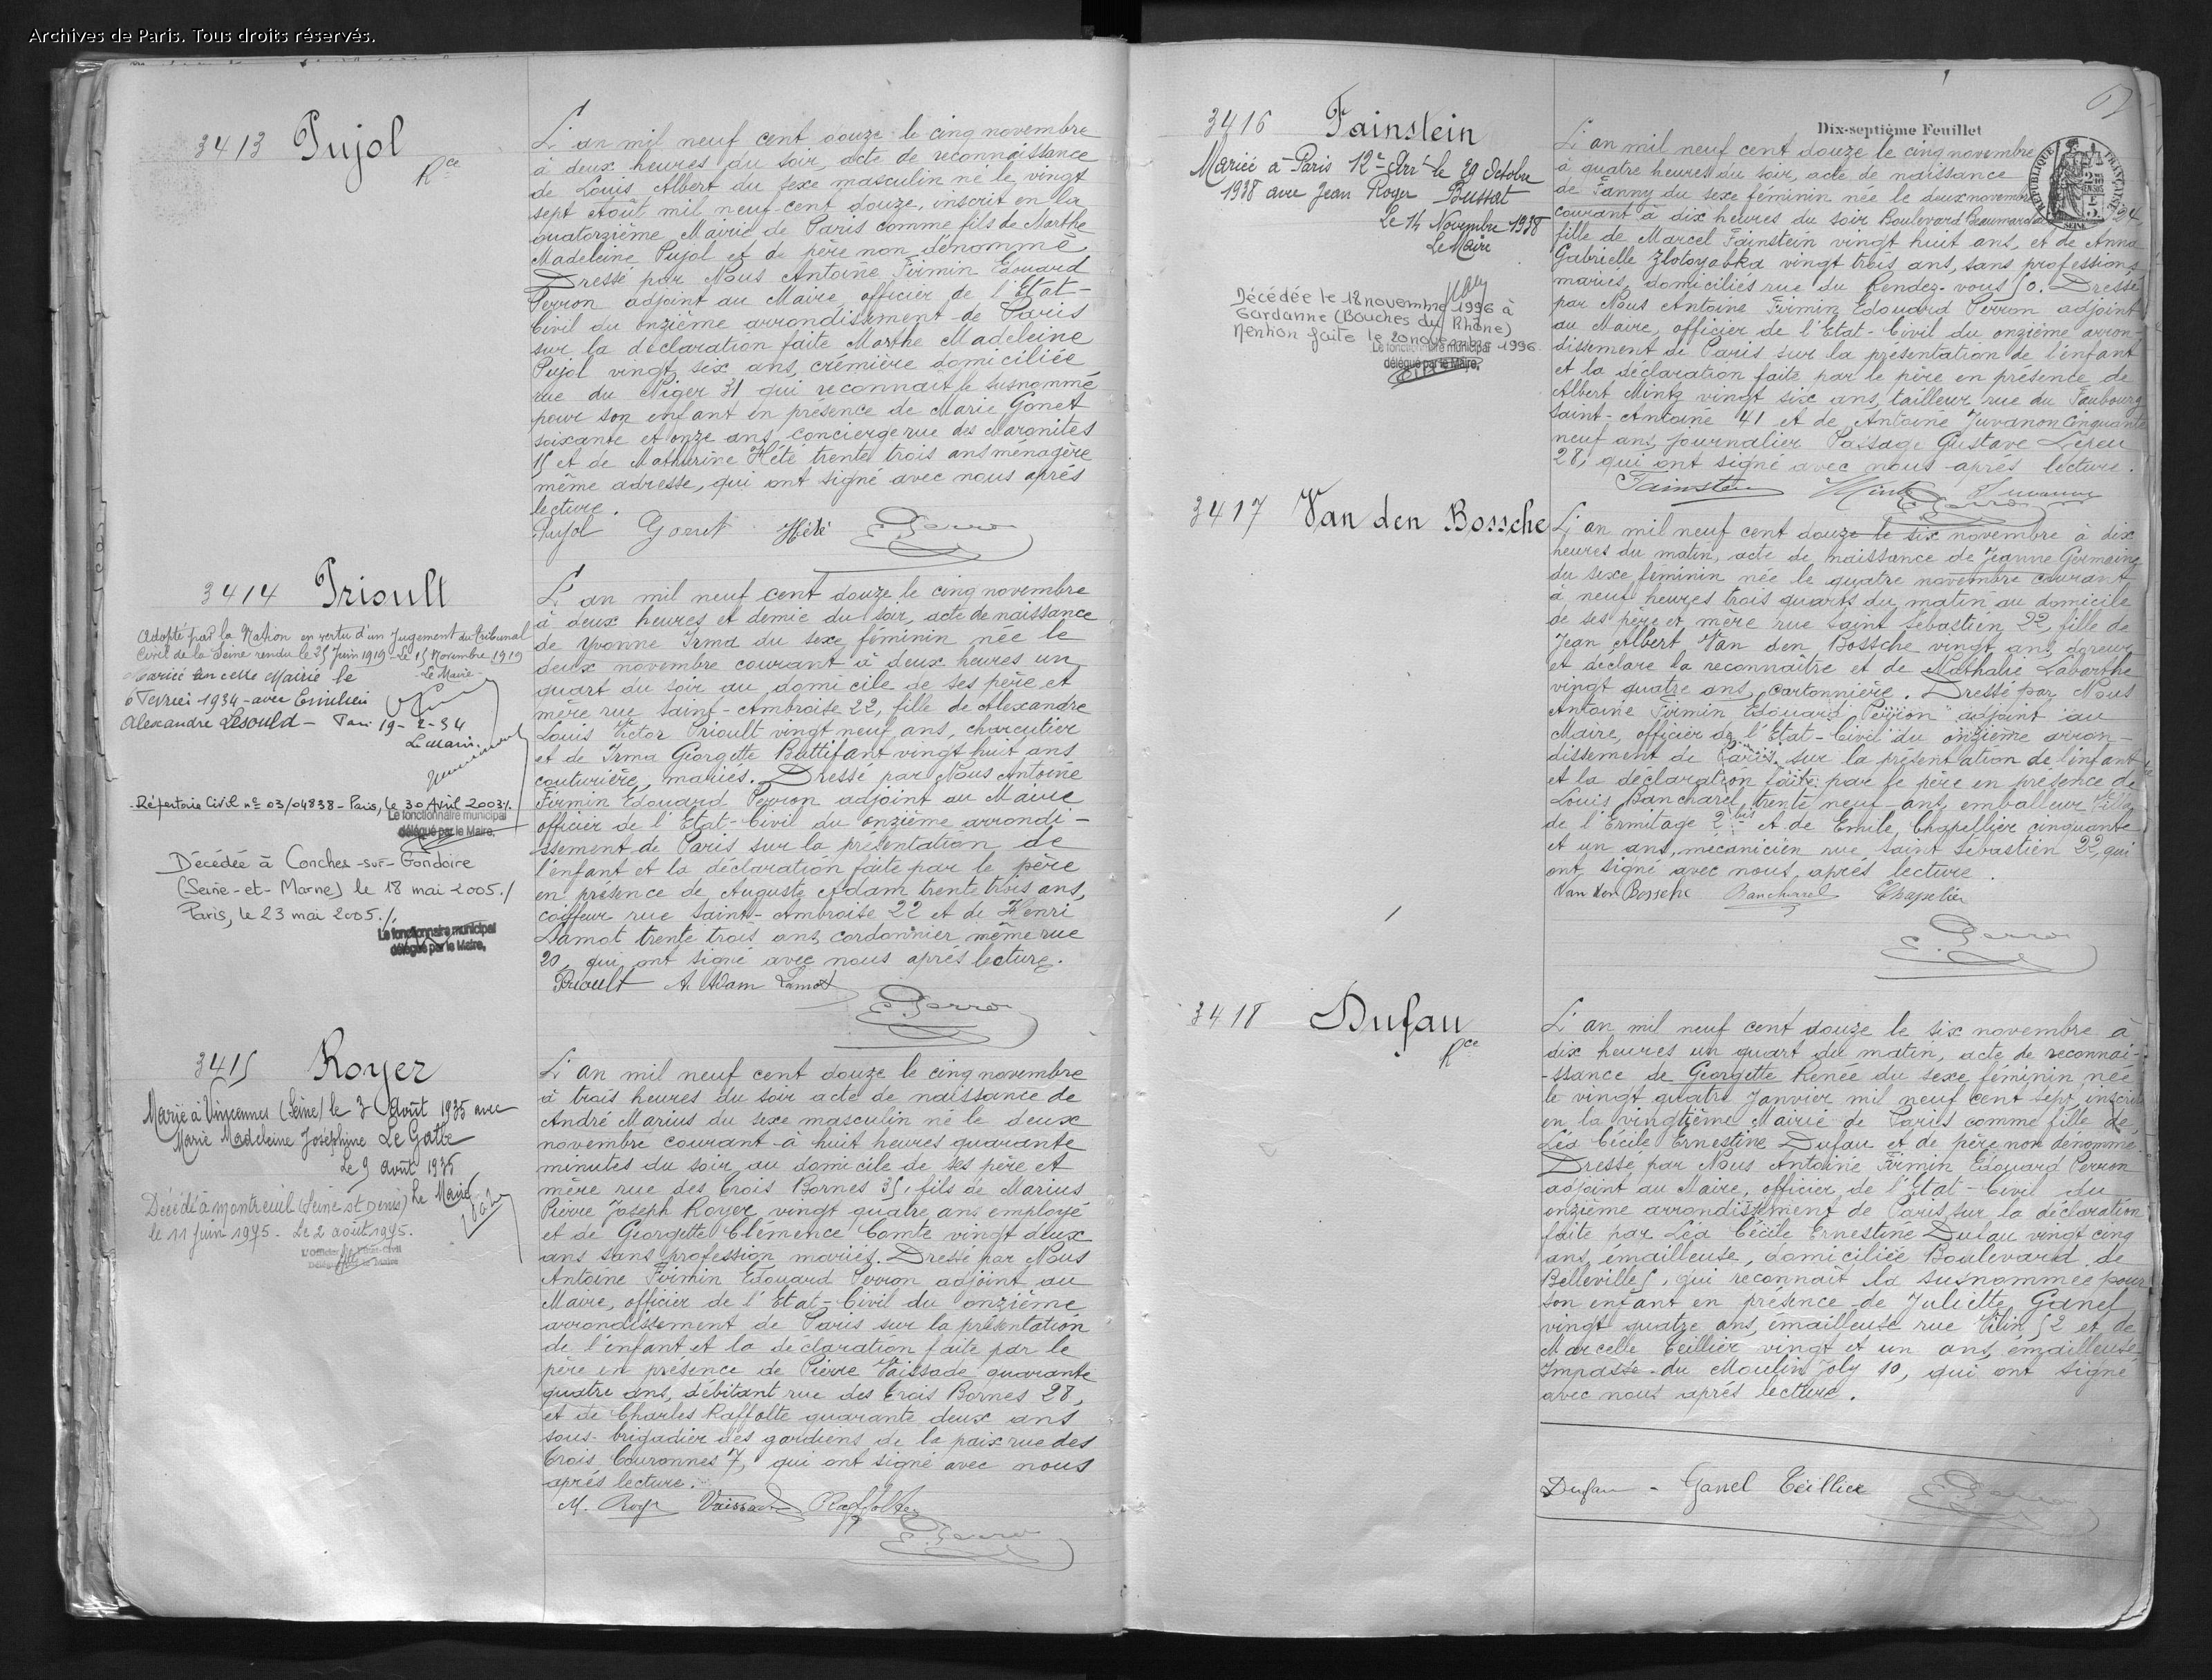 Archives de Paris. Tous droits réservés.
3413 Pujol
Rce
L'an mil neuf cent douze le cinq novembre
à deux heures du soir, acte de reconnaissance
de Louis Albert du sexe masculin né le vingt
sept Août mil neuf cent douze, inscrit en la
quatorzième Mairie de Paris comme fils de Marthe
Madeleine Pujol et de père non dénommé
Dressé par Nous Antoine Firmin Edouard
Perron adjoint au Maire, officier de l'Etat-
Civil du onzième arrondissement de Paris
sur la déclaration faite Marthe Madeleine
Pujol vingt six ans, crémière domiciliée
rue du Niger 31 qui reconnait le susnommé
pour son enfant en présence de Marie Gonet
soixante et onze ans, concierge rue des Maronites
15 et de Mathurine Hété trente trois ans ménagère
même adresse, qui ont signé avec nous après
lecture.
Pujol Gonet Hété E. Perron
3414 Prioult
Adopté par la Nation en vertu d'un Jugement du Tribunal
Civil de la Seine rendu le 25 Juin 1919 - Le 15 Novembre 1919
Le Maire -
Mariée en cette Mairie le
6 Février 1934 - avec Emilien
Alexandre Lesould - Paris 19-2-34
Le Maire.
Répertoire Civil nº 03/04838 - Paris, le 30 Avril 2003./.
Le fonctionnaire municipal
délégué par le Maire,
Décédée à Conches-sur-Gondoire
(Seine-et-Marne) le 18 mai 2005./
Paris, le 23 mai 2005./.
Le fonctionnaire municipal
délégué par le Maire,
L'an mil neuf cent douze le cinq novembre
à deux heures et demie du soir, acte de naissance
de Yvonne Irma du sexe féminin née le
deux novembre courant à deux heures un
quart du soir au domicile de ses père et
mère rue Saint-Ambroise 22, fille de Alexandre
Louis Victor Prioult vingt neuf ans, charcutier
et de Irma Georgette Battifant vingt huit ans
couturière, mariés. Dressé par Nous Antoine
Firmin Edouard Perron adjoint au Maire
officier de l'Etat-Civil du onzième arrondi-
ssement de Paris sur la présentation de
l'enfant et la déclaration faite par le père
en présence de Auguste Adam trente trois ans,
coiffeur rue Saint-Ambroise 22 et de Henri
Lamot trente trois ans, cordonnier même rue
20, qui ont signé avec nous après lecture.
Prioult A. Adam Lamot
E. Perron
3415 Royer
Marié à Vincennes (Seine) le 3 Août 1935 avec
Marie Madeleine Joséphine Le Gatte
Le 9 août 1935
Le Maire
Décédé à Montreuil (Seine St Denis)
le 11 juin 1975. Le 2 août 1975.
L'Officier de l'Etat-Civil
Délégué par le Maire
L'an mil neuf cent douze le cinq novembre
à trois heures du soir acte de naissance de
André Marius du sexe masculin né le deux
novembre courant à huit heures quarante
minutes du soir au domicile de ses père et
mère rue des Trois Bornes 35, fils de Marius
Pierre Joseph Royer vingt quatre ans employé
et de Georgette Clémence Comte vingt deux
ans sans profession mariés. Dressé par Nous
Antoine Firmin Edouard Perron adjoint au
Maire, officier de l'Etat-Civil du onzième
arrondissement de Paris sur la présentation
de l'enfant et la déclaration faite par le
père en présence de Pierre Vaissade quarante
quatre ans, débitant rue des Trois Bornes 28,
et de Charles Raffolte quarante deux ans
sous-brigadier des gardiens de la paix rue des
Trois Couronnes 7, qui ont signé avec nous
après lecture.
M. Royer Vaissade Raffolte
E. Perron
3416 Fainstein
Mariée à Paris 12e Arrt le 29 Octobre
1938 avec Jean Roger Bussat
Le 14 Novembre 1938
Le Maire
Décédée le 18 novembre 1996 à
Gardanne (Bouches du Rhône)
Mention faite le 20 novembre 1996.
Le fonctionnaire municipal
délégué par le Maire,
Dix-septième Feuillet
RÉPUBLIQUE FRANÇAISE
SEINE
L'an mil neuf cent douze le cinq novembre
à quatre heures du soir, acte de naissance
de Fanny du sexe féminin née le deux novembre
courant à dix heures du soir Boulevard Beaumarchais 24
fille de Marcel Fainstein vingt huit ans, et de Anna
Gabrielle Zlotoyabka vingt trois ans, sans profession,
mariés, domiciliés rue du Rendez-vous 50. Dressé
par Nous Antoine Firmin Edouard Perron adjoint
au Maire, officier de l'Etat-Civil du onzième arron-
dissement de Paris sur la présentation de l'enfant
et la déclaration faite par le père en présence de
Albert Mintz vingt six ans, tailleur rue du Faubourg
Saint-Antoine 41 et de Antoine Juvanon cinquante
neuf ans, journalier Passage Gustave Lepeu
28, qui ont signé avec nous après lecture.
Fainstein Mintz Juvanon
E. Perron
3417 Van den Bossche
L'an mil neuf cent douze le six novembre à dix
heures du matin, acte de naissance de Jeanne Germaine
du sexe féminin née le quatre novembre courant
à neuf heures trois quarts du matin au domicile
de ses père et mère rue Saint Sébastien 22, fille de
Jean Albert Van den Bossche vingt ans, doreur
et déclare la reconnaître et de Nathalie Labarthe
vingt quatre ans, cartonnière. Dressé par Nous
Antoine Firmin Edouard Perron adjoint au
Maire, officier de l'Etat-Civil du onzième arron-
dissement de Paris sur la présentation de l'enfant
et la déclaration faite par le père en présence de
Louis Bancharel trente neuf ans, emballeur Villa
de l'Ermitage 2 bis et de Emile Chapellier cinquante
et un ans, mécanicien rue Saint Sébastien 22, qui
ont signé avec nous après lecture.
Van den Bossche Bancharel Chapelier
E. Perron
3418 Dufau
Rce
L'an mil neuf cent douze le six novembre à
dix heures un quart du matin, acte de reconnai-
-ssance de Georgette Renée du sexe féminin née
le vingt quatre Janvier mil neuf cent sept inscrite
en la vingtième Mairie de Paris comme fille de
Léa Cécile Ernestine Dufau et de père non dénommé.
Dressé par Nous Antoine Firmin Edouard Perron
adjoint au Maire, officier de l'Etat-Civil du
onzième arrondissement de Paris sur la déclaration
faite par Léa Cécile Ernestine Dufau vingt cinq
ans, émailleuse, domiciliée Boulevard de
Belleville 5, qui reconnaît la susnommée pour
son enfant en présence de Juliette Ganel
vingt quatre ans, émailleuse rue Vilin 52 et de
Marcelle Teillier vingt et un ans, émailleuse
Impasse du Moulin Joly 10, qui ont signé
avec nous après lecture.
Dufau - Ganel Teillier E. Perron